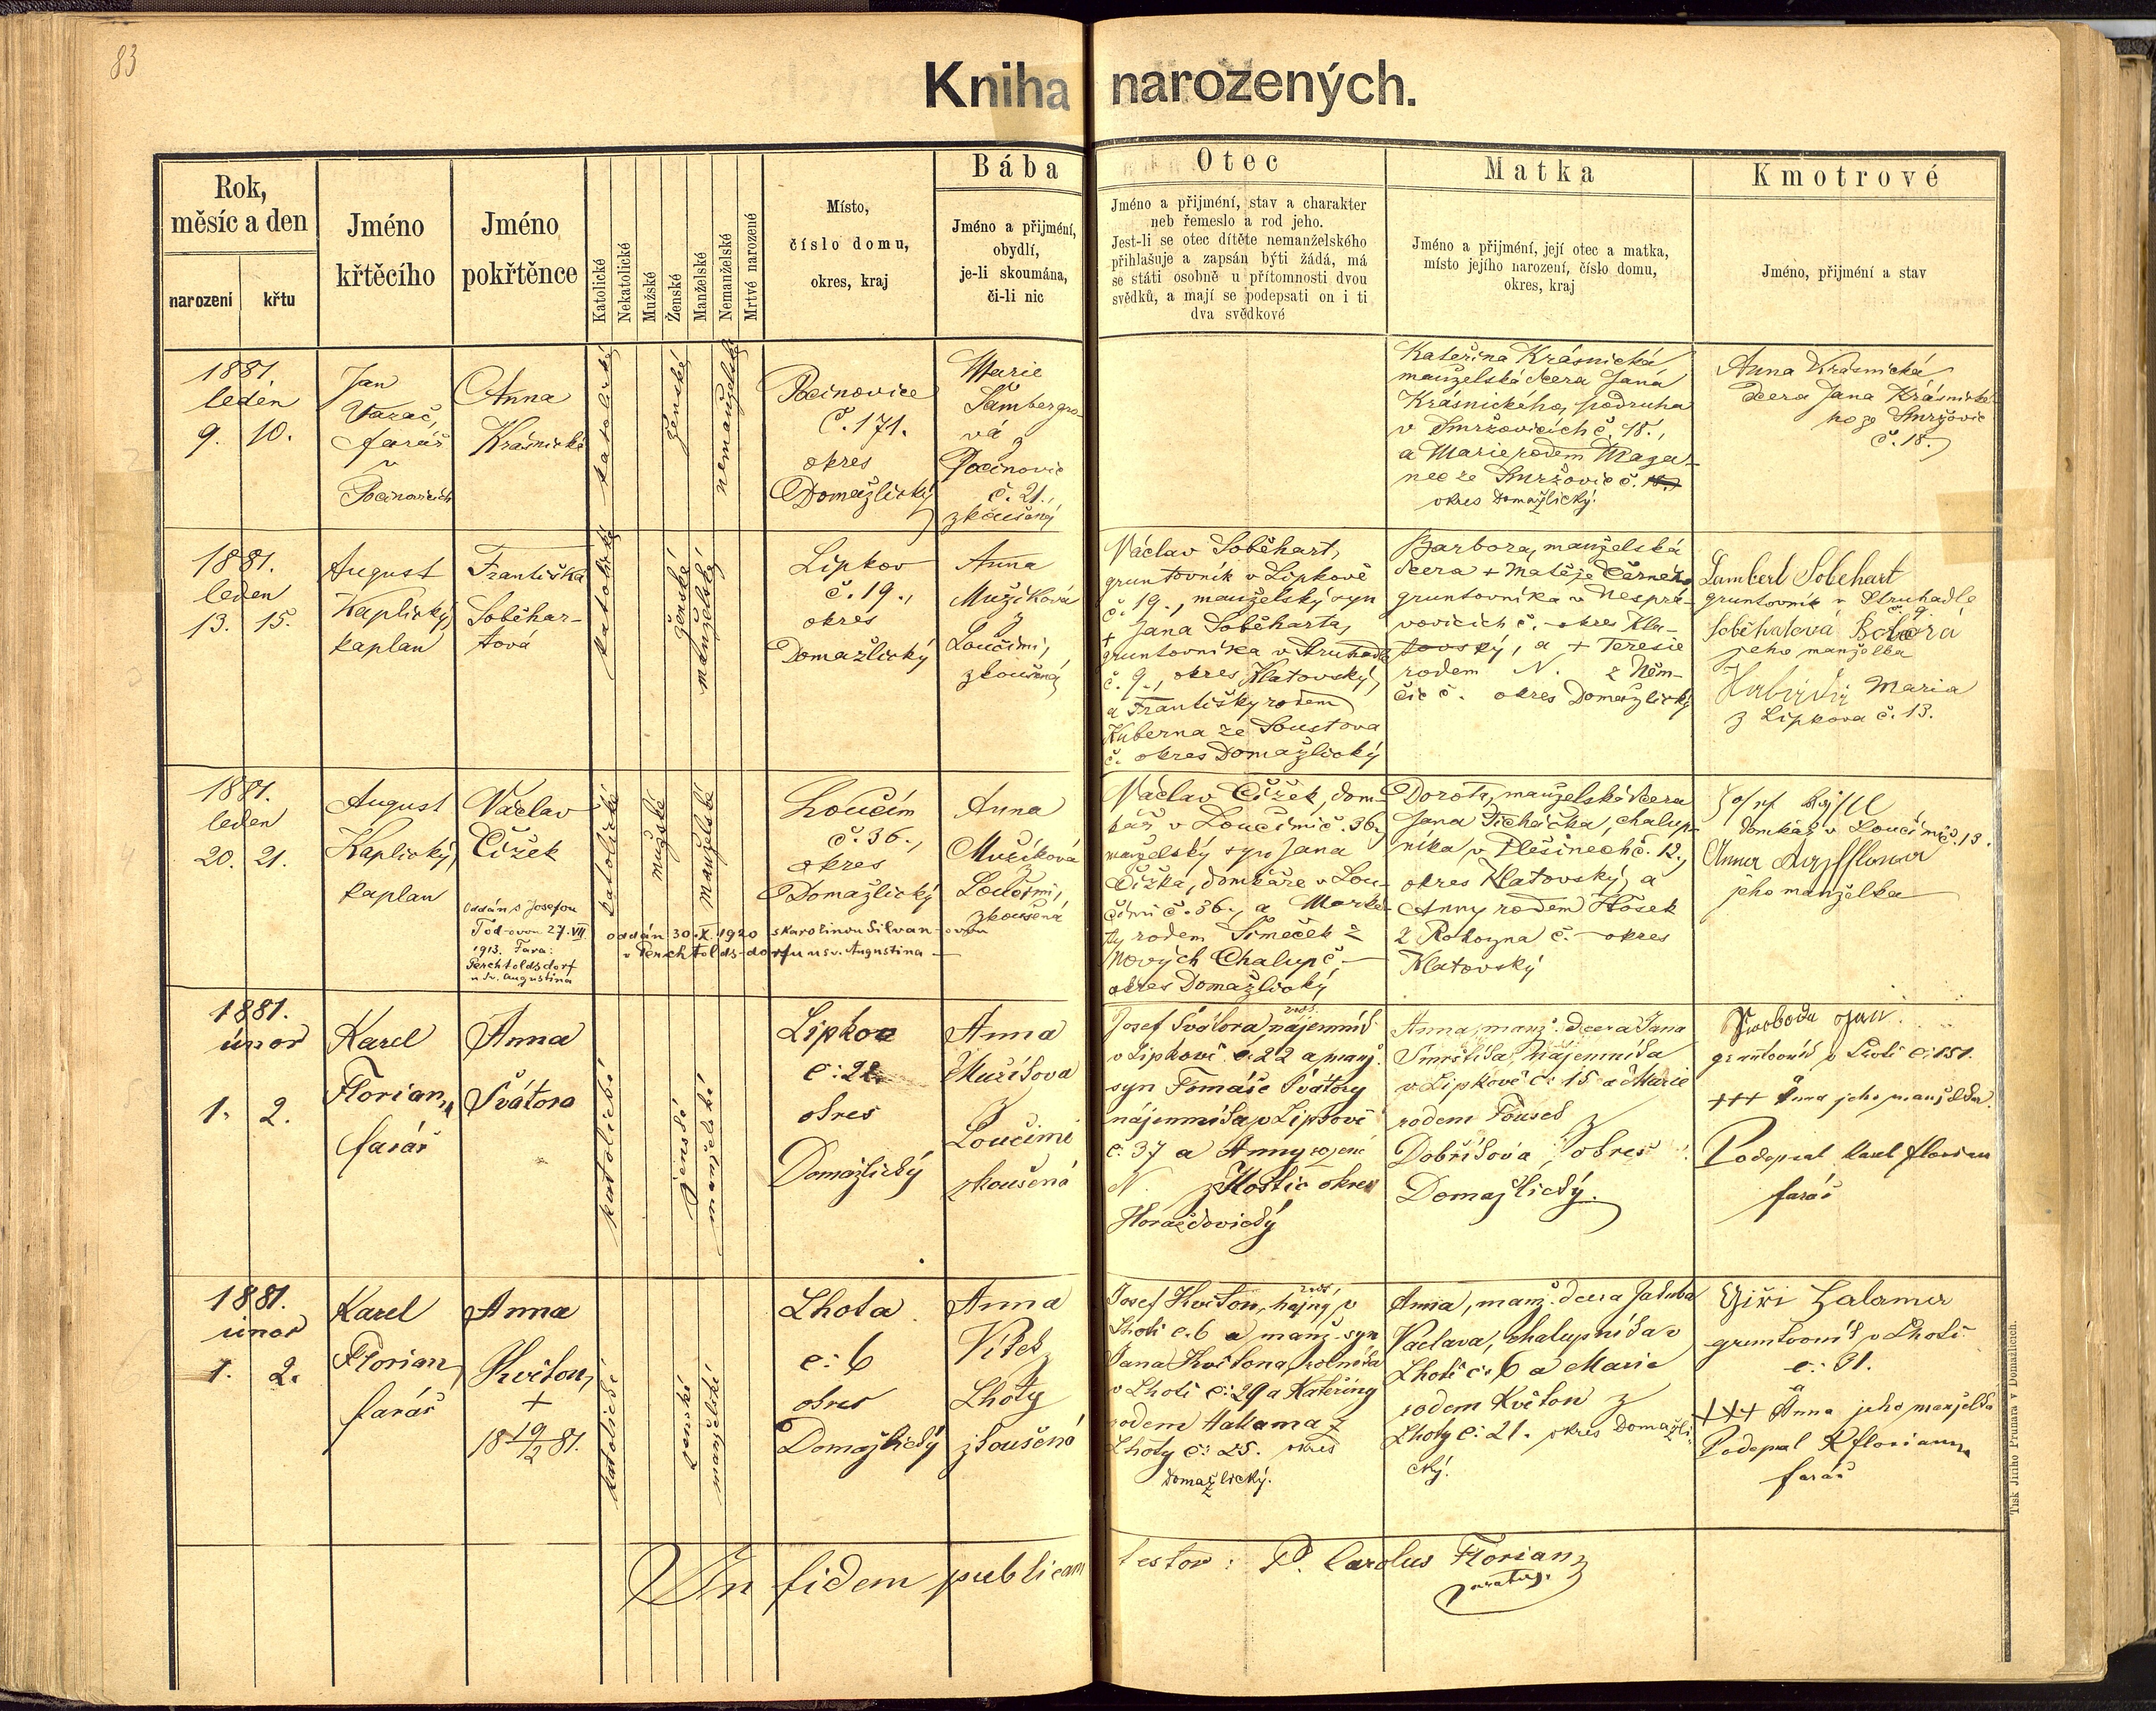 83
Kniha narozených.
Rok,
měsíc a den
narození
křtu
Jméno
křtěcího
Jméno
pokřtěnce
Katolické
Nekatolické
Mužské
Ženské
Manželské
Nemanželské
Mrtvé narozené
Místo,
číslo domu,
okres, kraj
Bába
Jméno a přijmění,
obydlí,
je-li skoumána,
či-li nic
Otec
Jméno a přijmění, stav a charakter
neb řemeslo a rod jeho.
Jest-li se otec dítěte nemanželského
přihlašuje a zapsán býti žádá, má
se státi osobně u přítomnosti dvou
svědků, a mají se podepsati on i ti
dva svědkové
Matka
Jméno a přijmění, její otec a matka,
místo jejího narození, číslo domu,
okres, kraj
Kmotrové
Jméno, přijmění a stav
1881.
leden
9. 10.
Jan
farář
v
Pocinovicích
Anna
Krásnická
katolické
ženské
nemanželské
Pocinovice
č. 171.
okres
Domažlický
Marie
Šambergro-
vá z
Pocinovic
č. 21.,
zkoušená
Kateřina Krásnická
manželská dcera Jana
Krásnického, podruha
v Smržovicích č. 18.,
a Marie rodem Maga-
nec ze Smržovic č.
okres Domažlický.
Anna Krásnická
dcera Jana Krásnické-
ho ze Smržovic
č. 18.
1881.
leden
13. 15.
August
Kaplický
kaplan
Františka
Soběhar-
tová
katolické
ženské
manželské
Lipkov
č. 19.,
okres
Domažlický
Anna
Mužíková
z
Loučimi,
zkoušená
Václav Soběhart,
gruntovník v Lipkově
č. 19., manželský syn
+ Jana Soběharta,
gruntovníka v Struhadle
č. 9., okres Klatovský,
a Františky rodem
Kuberna ze Soustova
č. okres Domažlický
Barbora, manželská
dcera + Matěje Černého
gruntovníka v Nespra-
vovicích č. - okres Kla-
tovský, a + Teresie
rodem N. z Něm-
čic č. okres Domažlický
Lambert Sobehart
gruntovník v Struhadle
č. 9.
jeho manželka
Maria
z Lipkova č. 13.
1881.
leden
20. 21.
August
Kaplický
kaplan
Václav
Čížek
Oddán s Josefou
Tod-ovou 27. VII
1913. Fara:
Perchtoldsdorf
u sv. Augustina
katolické
mužské
manželské
oddán 30. X. 1920 s Karolinou Silwan-ovou
v Perchtolds-dorfu u sv. Augustina
Loučim
č. 36.,
okres
Domažlický
Anna
Mužíková
z
Loučimi,
zkoušená
Václav Čížek, dom-
kář v Loučimi č. 36.,
manželský syn Jana
Čížka, domkáře v Lou-
čimi č. 36., a Marke-
ty rodem Šimeček z
Nových Chalup č. -
okres Domažlický
Dorota, manželská dcera
Jana Ticháčka, chalup-
níka v Dešinech č. 12.,
okres Klatovský, a
Anny rodem Hošek
z Rohozna č. - okres
Klatovský
domkář v Loučimi č. 13.
Anna
jeho manželka
1881.
únor
1. 2.
Karel
Florian,
farář
Anna
Švátora
katolické
ženské
manželské
Lipkov
č: 22.
okres
Domažlický
Anna
Mužíkova
z
Loučimi
zkoušená
Josef Švátora, nájemník
v Lipkově č: 22 a manž.
syn Tomáše Švátory
nájemníka v Lipkově
č: 37 a Anny rozené
N. z Hoštic okres
Horažďovický
Anna, manž. dcera Jana
nájemníka
v Lipkově č: 15 a Marie
rodem Toušek z
Dobříkova, okres
Domažlický.
Svoboda Jan
gruntovník v Lhotě č: 151.
a
+++ Anna jeho manželka.
Podepsal Karel Florian
farář
1881.
únor
1. 2.
Karel
Florian,
farář
Anna
Květon,
+
18 19/2 81.
katolické
ženské
manželské
Lhota
č: 6
okres
Domažlický
Anna
Vítek z
Lhoty
zkoušená
Josef Květon, hajný v
Lhotě č. 6 a manž. syn
Jana Květona, rolníka
v Lhotě č: 29 a Kateřiny
rodem Hallama z
Lhoty č: 25. okres
Domažlický.
Anna, manž. dcera Jakuba
Vaclava, chalupníka v
Lhotě č: 6 a Marie
rodem Květon z
Lhoty č: 21. okres Domažli-
cký.
Jiří Halama
gruntovník v Lhotě
č: 31.
a
+++ Anna jeho manželka
Podepsal K Florian
farář
In fidem publicam testor: P. Carolus Florian
Tisk Jiřího Prunara v Domažlicích.